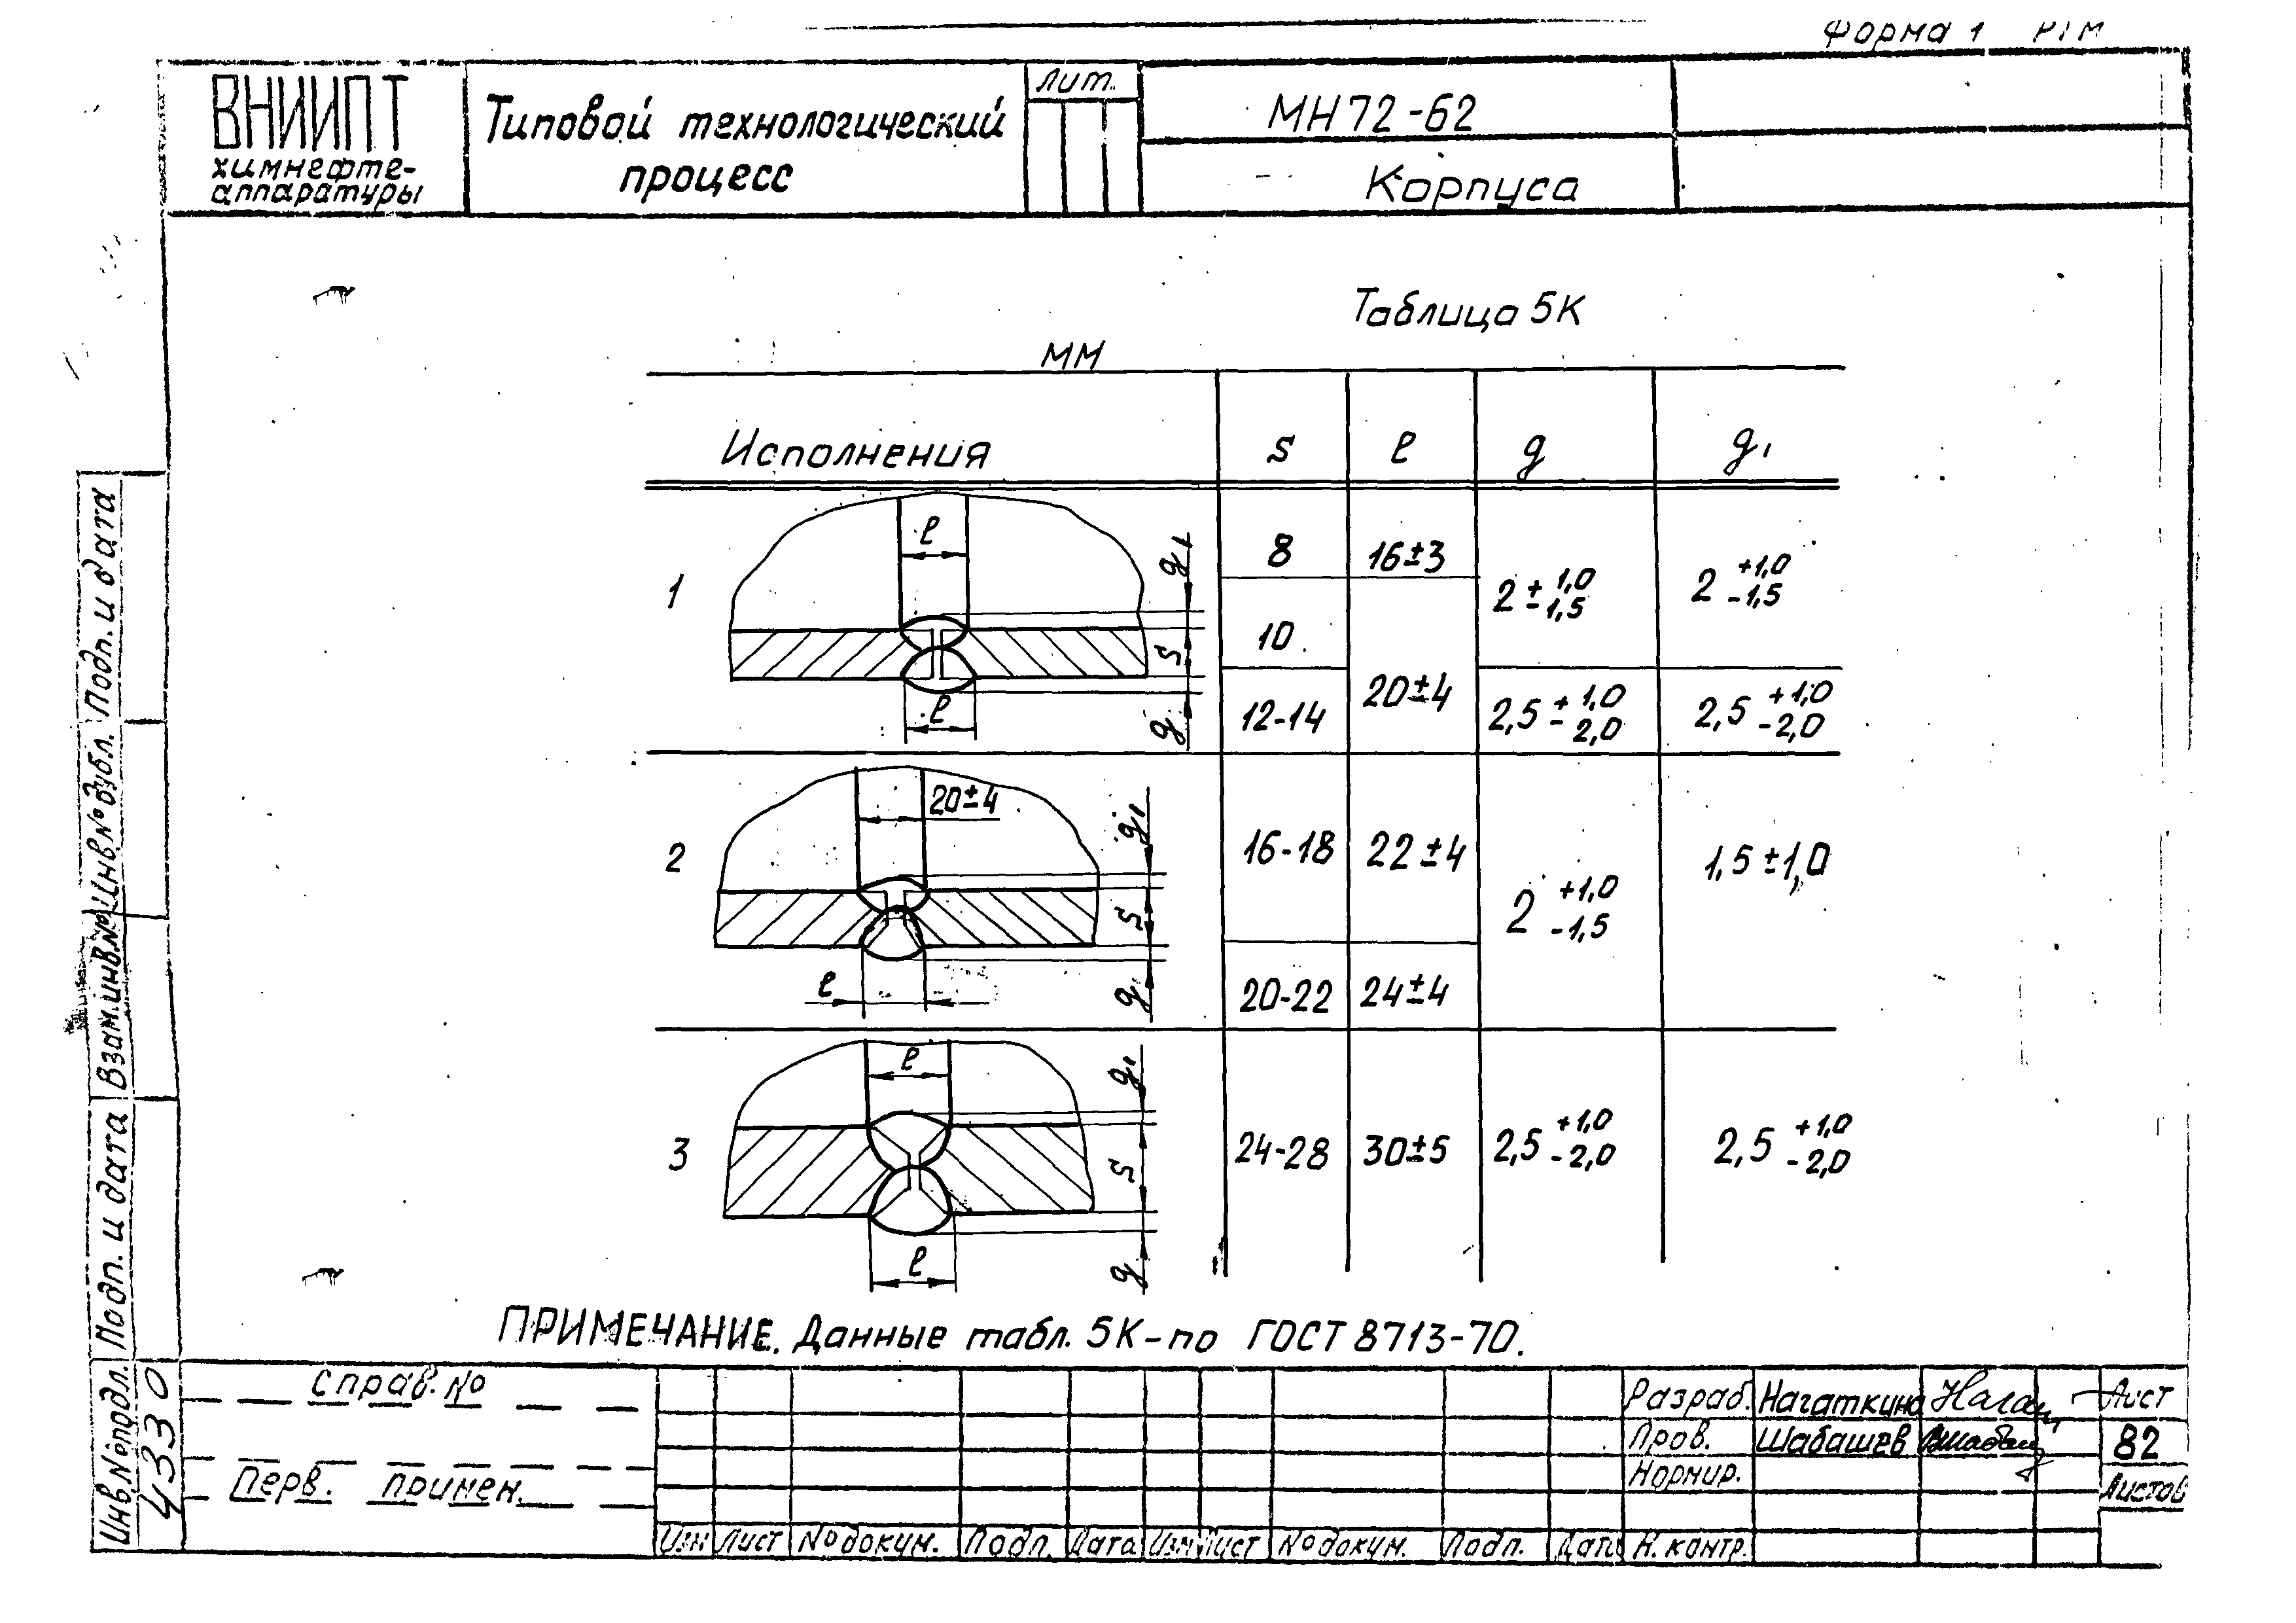 Форма 1 РТМ
ВНИИПТ
химнефте-
аппаратуры
Типовой технологический
процесс
Лит.
МН 72-62
Корпуса
Таблица 5К
мм
Исполнения s ℓ g g₁
1
ℓ g₁ s ℓ g
8 16±3
2 ± 1,0 - 1,5
2 +1,0 -1,5
10
20±4
12-14
2,5 ± 1,0 - 2,0
2,5 +1,0 -2,0
2
20±4 g₁ s ℓ g
16-18 22±4
2 +1,0 -1,5
1,5±1,0
20-22 24±4
3
ℓ g₁ s ℓ g
24-28 30±5
2,5 +1,0 -2,0
2,5 +1,0 -2,0
ПРИМЕЧАНИЕ. Данные табл. 5К-по ГОСТ 8713-70.
Подп. и дата
Инв.№ дубл.
Взам.инв.№
Подп. и дата
Инв.№ подл.
4330
Справ. №
Перв. примен.
Разраб. Нагаткина Лист
Пров. Шабашев 82
Нормир. Листов
Изм Лист № докум. Подп. Дата Изм Лист № докум. Подп. Дата Н. контр.